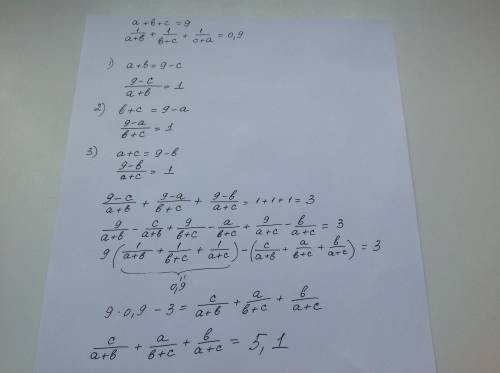 a+b+c=9
1/(a+b) + 1/(b+c) + 1/(c+a) = 0,9
1) a+b=9-c
(9-c)/(a+b) = 1
2) b+c=9-a
(9-a)/(b+c) = 1
3) a+c=9-b
(9-b)/(a+c) = 1
(9-c)/(a+b) + (9-a)/(b+c) + (9-b)/(a+c) = 1+1+1=3
9/(a+b) - c/(a+b) + 9/(b+c) - a/(b+c) + 9/(a+c) - b/(a+c) = 3
9(1/(a+b) + 1/(b+c) + 1/(a+c)) - (c/(a+b) + a/(b+c) + b/(a+c)) = 3
0,9
9·0,9-3 = c/(a+b) + a/(b+c) + b/(a+c)
c/(a+b) + a/(b+c) + b/(a+c) = 5,1